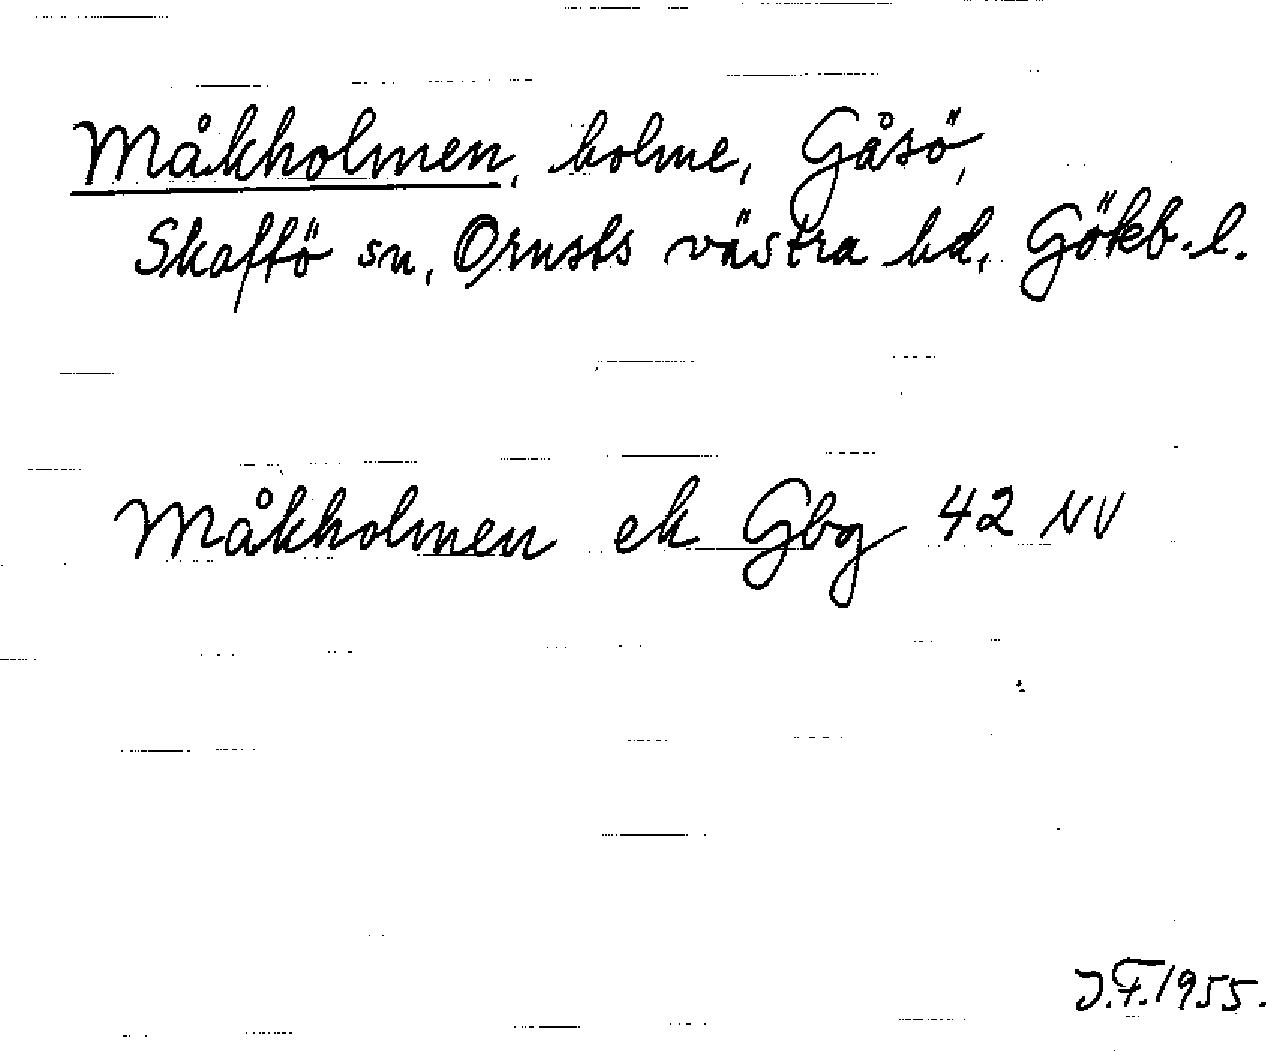 Måkholmen, holme, Gåsö,
Skaftö sn, Orusts västra hd, Gökb. l.
Måkholmen ek Gbg 42 NV
J.F. 1955.